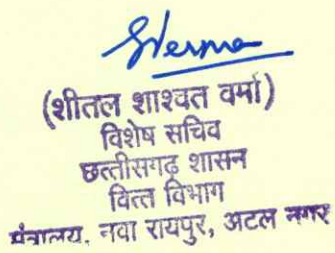 (शीतल शाश्वत वर्मा)
विशेष सचिव
छत्तीसगढ़ शासन
वित्त विभाग
मंत्रालय, नवा रायपुर, अटल नगर